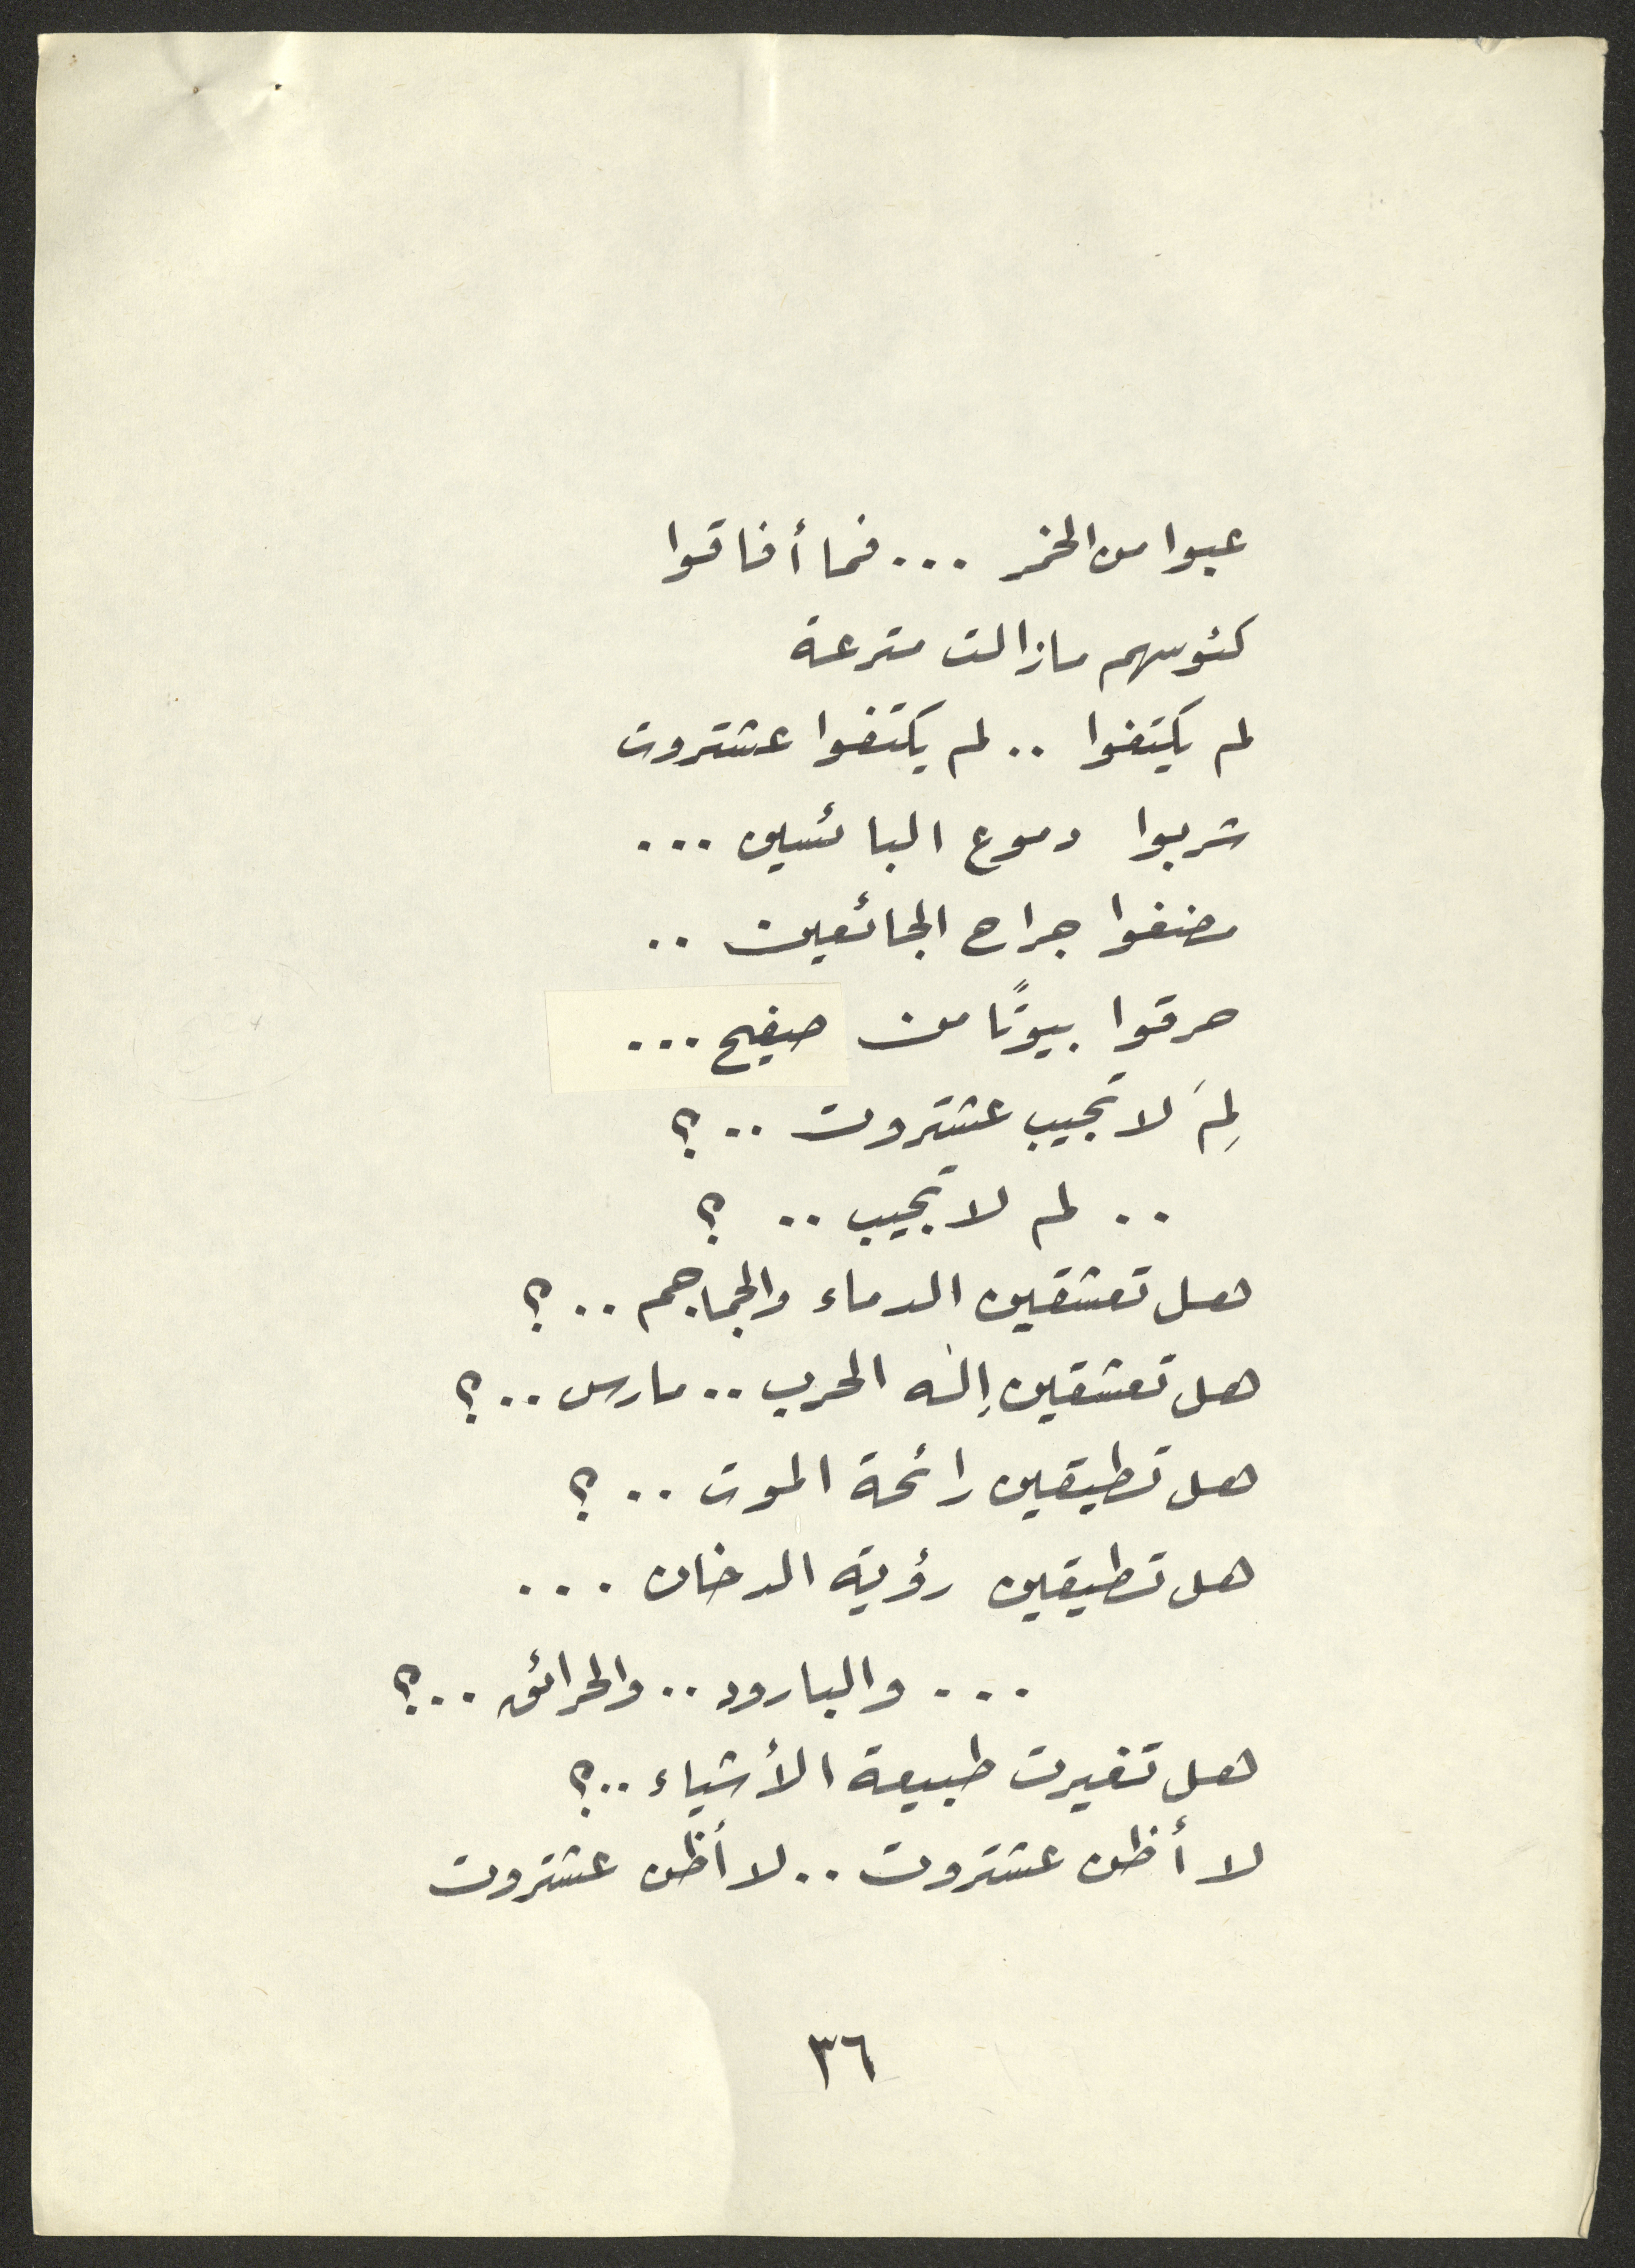 عبوا من الخمر ... فما أفاقوا
كئوسهم مازالت مترعة
لم يكتفوا .. لم يكتفوا عشتروت
شربوا دموع البائسين ...
مضغوا جراح الجائعين ..
حرقوا بيوتًا من صفيح ...
لِمَ لا تجيب عشتروت .. ؟
.. لم لا تجيب .. ؟
هل تعشقين الدماء والجماجم .. ؟
هل تعشقين إله الحرب .. مارس .. ؟
هل تطيقين رائحة الموت .. ؟
هل تطيقين رؤية الدخان ...
... والبارود .. والحرائق .. ؟
هل تغيرت طبيعة الأشياء .. ؟
لا أظن عشتروت .. لا أظن عشتروت
٣٦